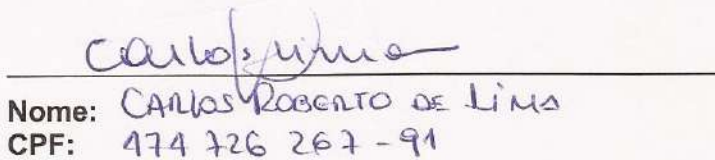 Carlos Lima
Nome: CARLOS ROBERTO DE LIMA
CPF: 474 726 267-91